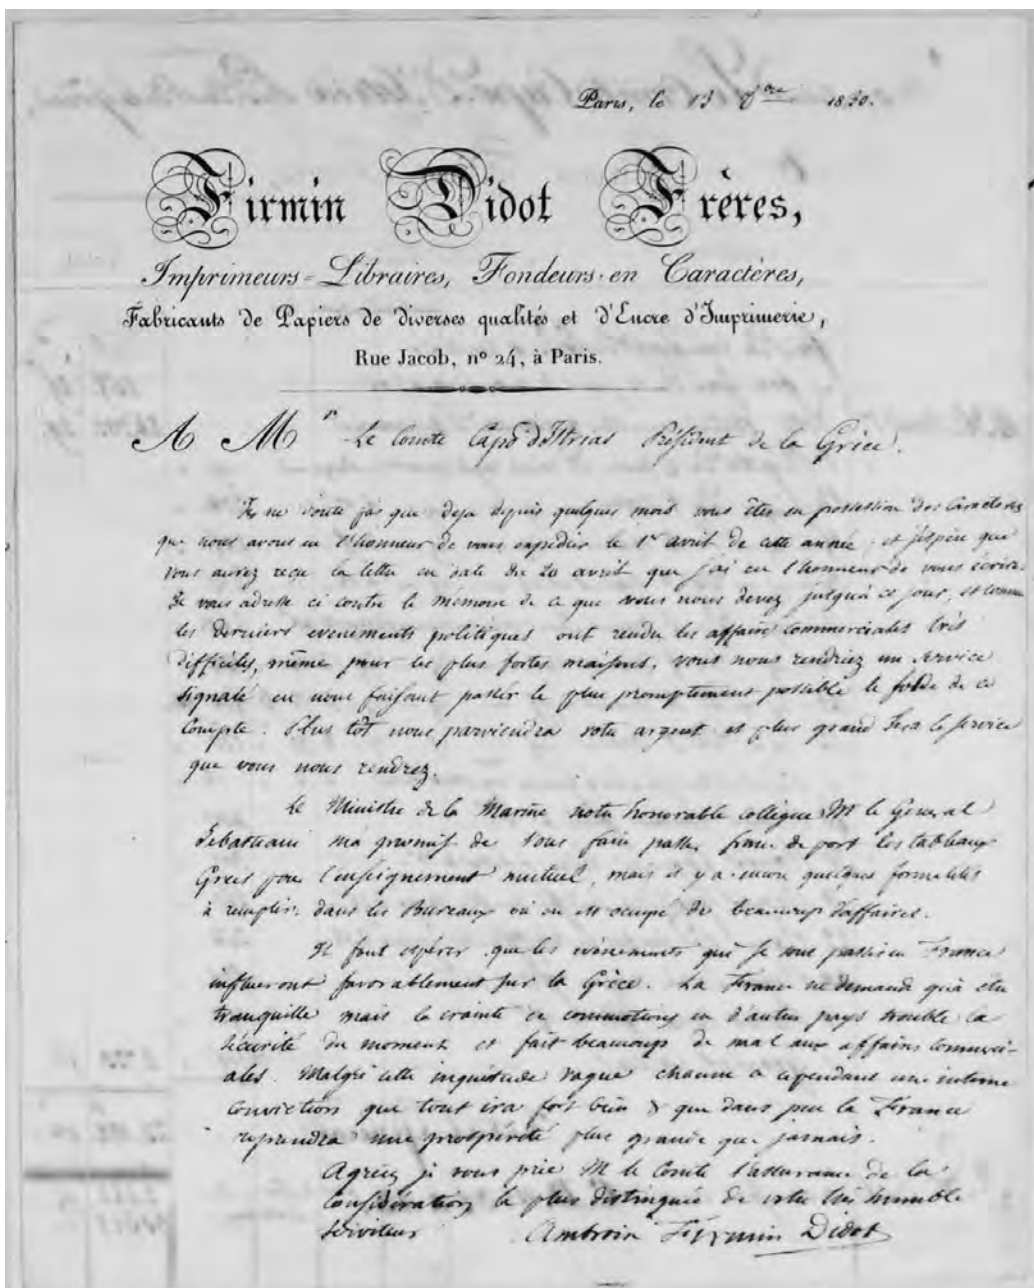 Paris, le 13 7bre 1830.
Firmin Didot Frères,
Imprimeurs=Libraires, Fondeurs en Caractères,
Fabricants de Papiers de diverses qualités et d'Encre d'Imprimerie,
Rue Jacob, nº 24, à Paris.
A Mr Le Comte Capo d'Istrias Président de la Grèce.
Je ne doute pas que deja depuis quelques mois vous êtes en possession des Caracteres
que nous avons eu l'honneur de vous expedier le 1er avril de cette année et j'espère que
vous aurez reçu la lettre en date du 20 avril que j'ai eu l'honneur de vous écrire.
Je vous adresse ci contre le memoire de ce que vous nous devez jusqu'à ce jour, et comme
les derniers evenements politiques ont rendu les affaires commerciales très
difficiles, même pour les plus fortes maisons, vous nous rendriez un service
signalé en nous faisant passer le plus promptement possible le solde de ce
Compte. Plus tôt nous parviendra votre argent et plus grand sera le service
que vous nous rendrez.
Le Ministre de la Marine notre honorable collègue Mr le General
Sebastiani m'a promis de vous faire passer franc de port les tableaux
Grecs pour l'enseignement mutuel, mais il y a encore quelques formalités
à remplir dans les Bureaux où on est occupé de beaucoup d'affaires.
Il faut espérer que les evènements qui se sont passés en France
influeront favorablement sur la Grèce. La France ne demande qu'à être
tranquille mais la crainte de commotions en d'autres pays trouble la
sécurité du moment et fait beaucoup de mal aux affaires commerci-
ales. Malgré cette inquietude vague chacun a cependant une intime
conviction que tout ira fort bien & que dans peu la France
reprendra une prospérité plus grande que jamais.
Agréez je vous prie M le Comte l'assurance de la
Considération la plus distinguée de votre très humble
serviteur Ambroise Firmin Didot